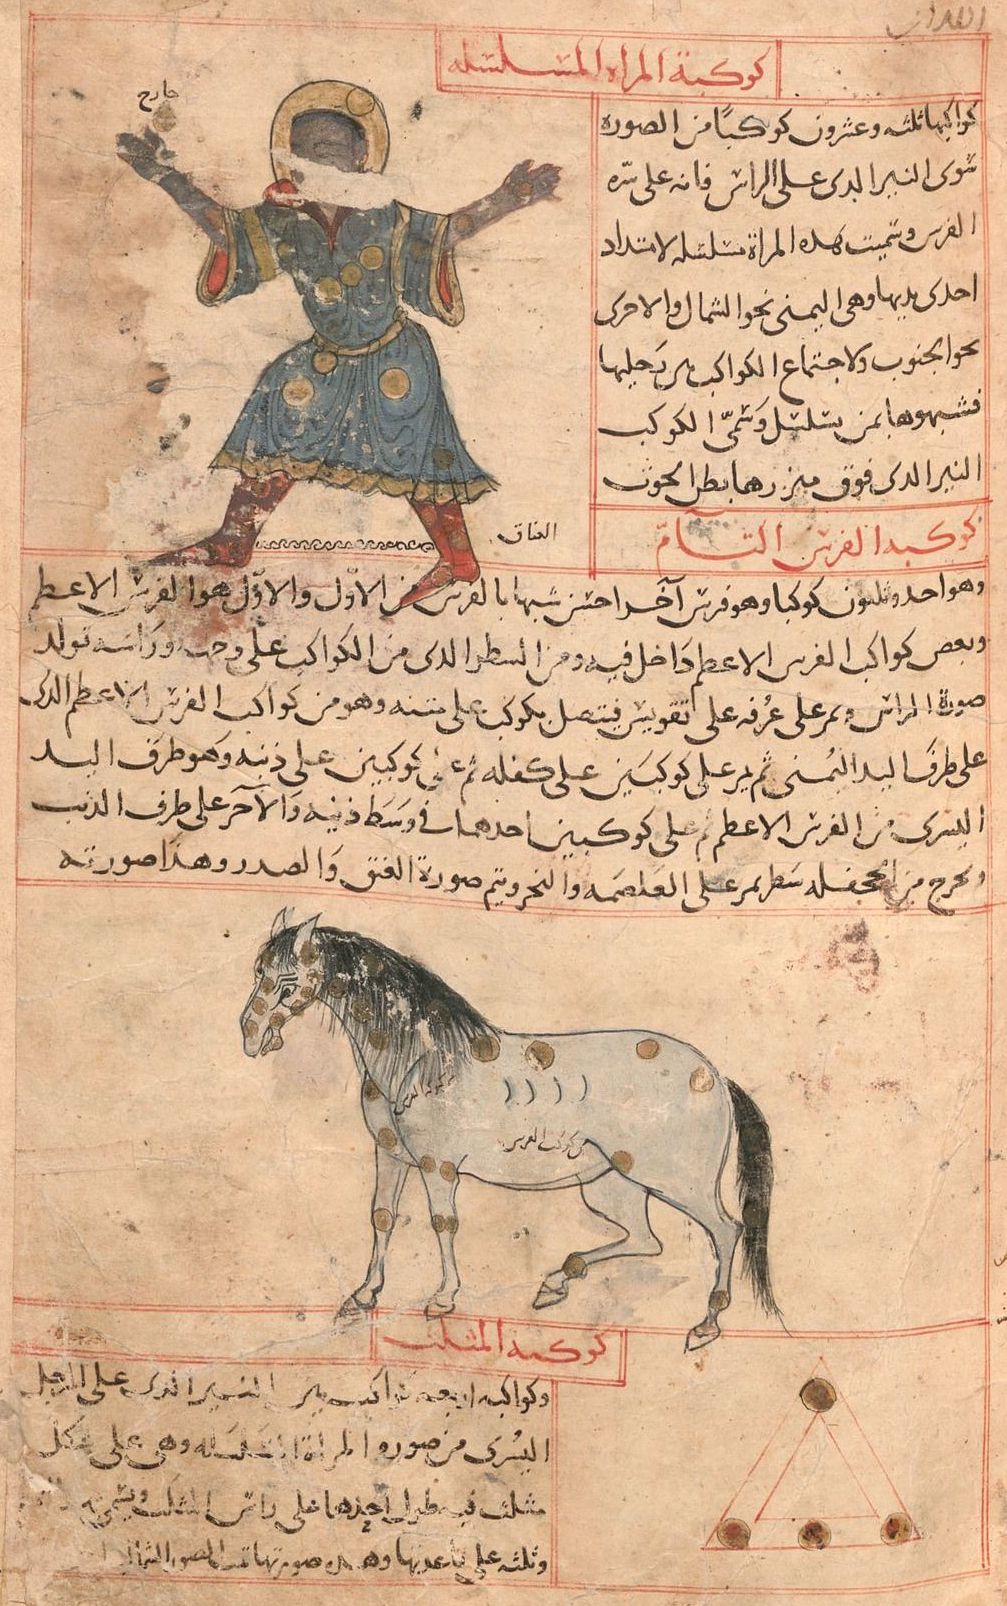 كوكبة المراه المسلسله
كواكبها ثلثه وعشرون كوكبًا من الصوره
سوى النير الذى على الراس فانه على سرّه
الفرس وسميت هذه المراة مسلسله لامتداد
احدى يديها وهى اليمنى نحو الشمال والاخرى
نحو الجنوب ولاجتماع الكواكب بين رجليها
فشبهوها بمن تسلسل وسمّى الكوكب
النير الذى فوق ميزرها بطن الحوت
خارج
العناق
كوكبه الفرس التامّ
وهو احد وثلثون كوكبا وهو فرس آخر احسن شبها بالفرس من الاوّل والاوّل هو الفرس الاعظم
وبعض كواكب الفرس الاعظم داخل فيه ومن السطر الذى من الكواكب على وجهه وراسه تولد
صورة الراس ويمر على عُرفه على تقويس فيتصل بكوكب على متنه وهو من كواكب الفرس الاعظم الذى
على طرف اليد اليُمنى ثم يمر على كوكبين على كفله ثم على كوكبين على ذنبه وهو طرف اليد
اليسرى من الفرس الاعظم ثم على كوكبين احدهما فى وسط ذنبه والآخر على طرف الذنب
ويخرج من الجحفله سطر يمر على الغلصمه والنحر ويتم صورة العنق والصدر وهذا صورته
من كوكبة الفرس
من كوكب الفرس
كوكبه المثلث
وكواكبه اربعه كواكب بين النير الذى على الرجل
اليُسرى من صوره المراة المسلسله وهى على شكل
مثلث فيه طول احدها على راس المثلث ويسمى
وثلثه على قاعدتها وهذه صورتها